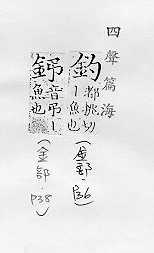 四聲篇海
釣都挑切丨魚也
(金部.P36)
音弔丨魚也
(金部.P38)